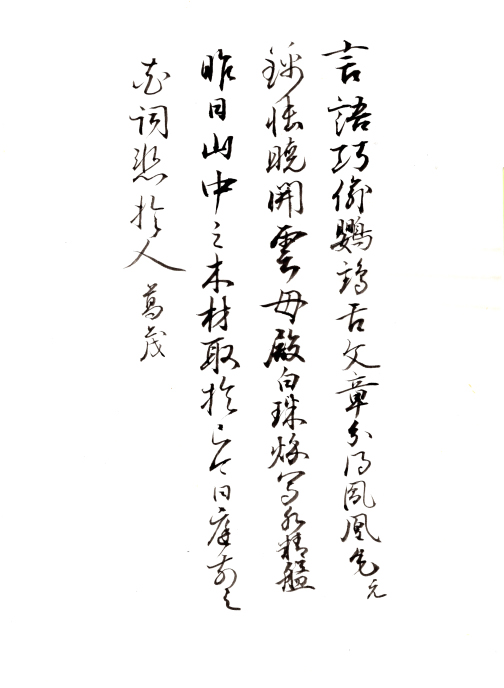 言語巧偸鸚鵡舌文章分得鳳凰毛元
錦帳曉開雲母殿白珠秋寫水精盤
昨日山中之木材取於己今日庭前之
花詞慙於人篤茂